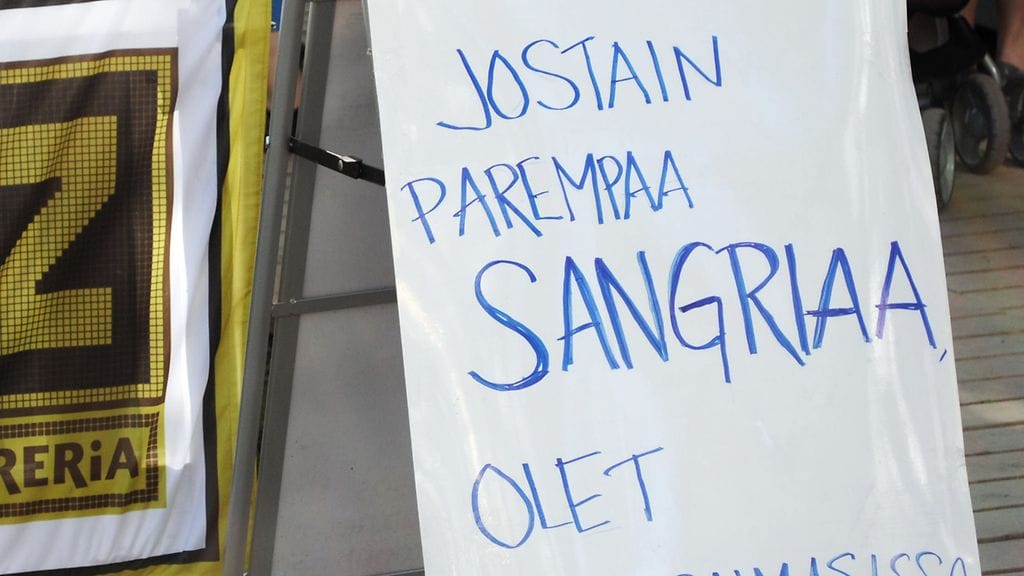 Z
RERiA
JOSTAIN
PAREMPAA
SANGRIAA,
OLET